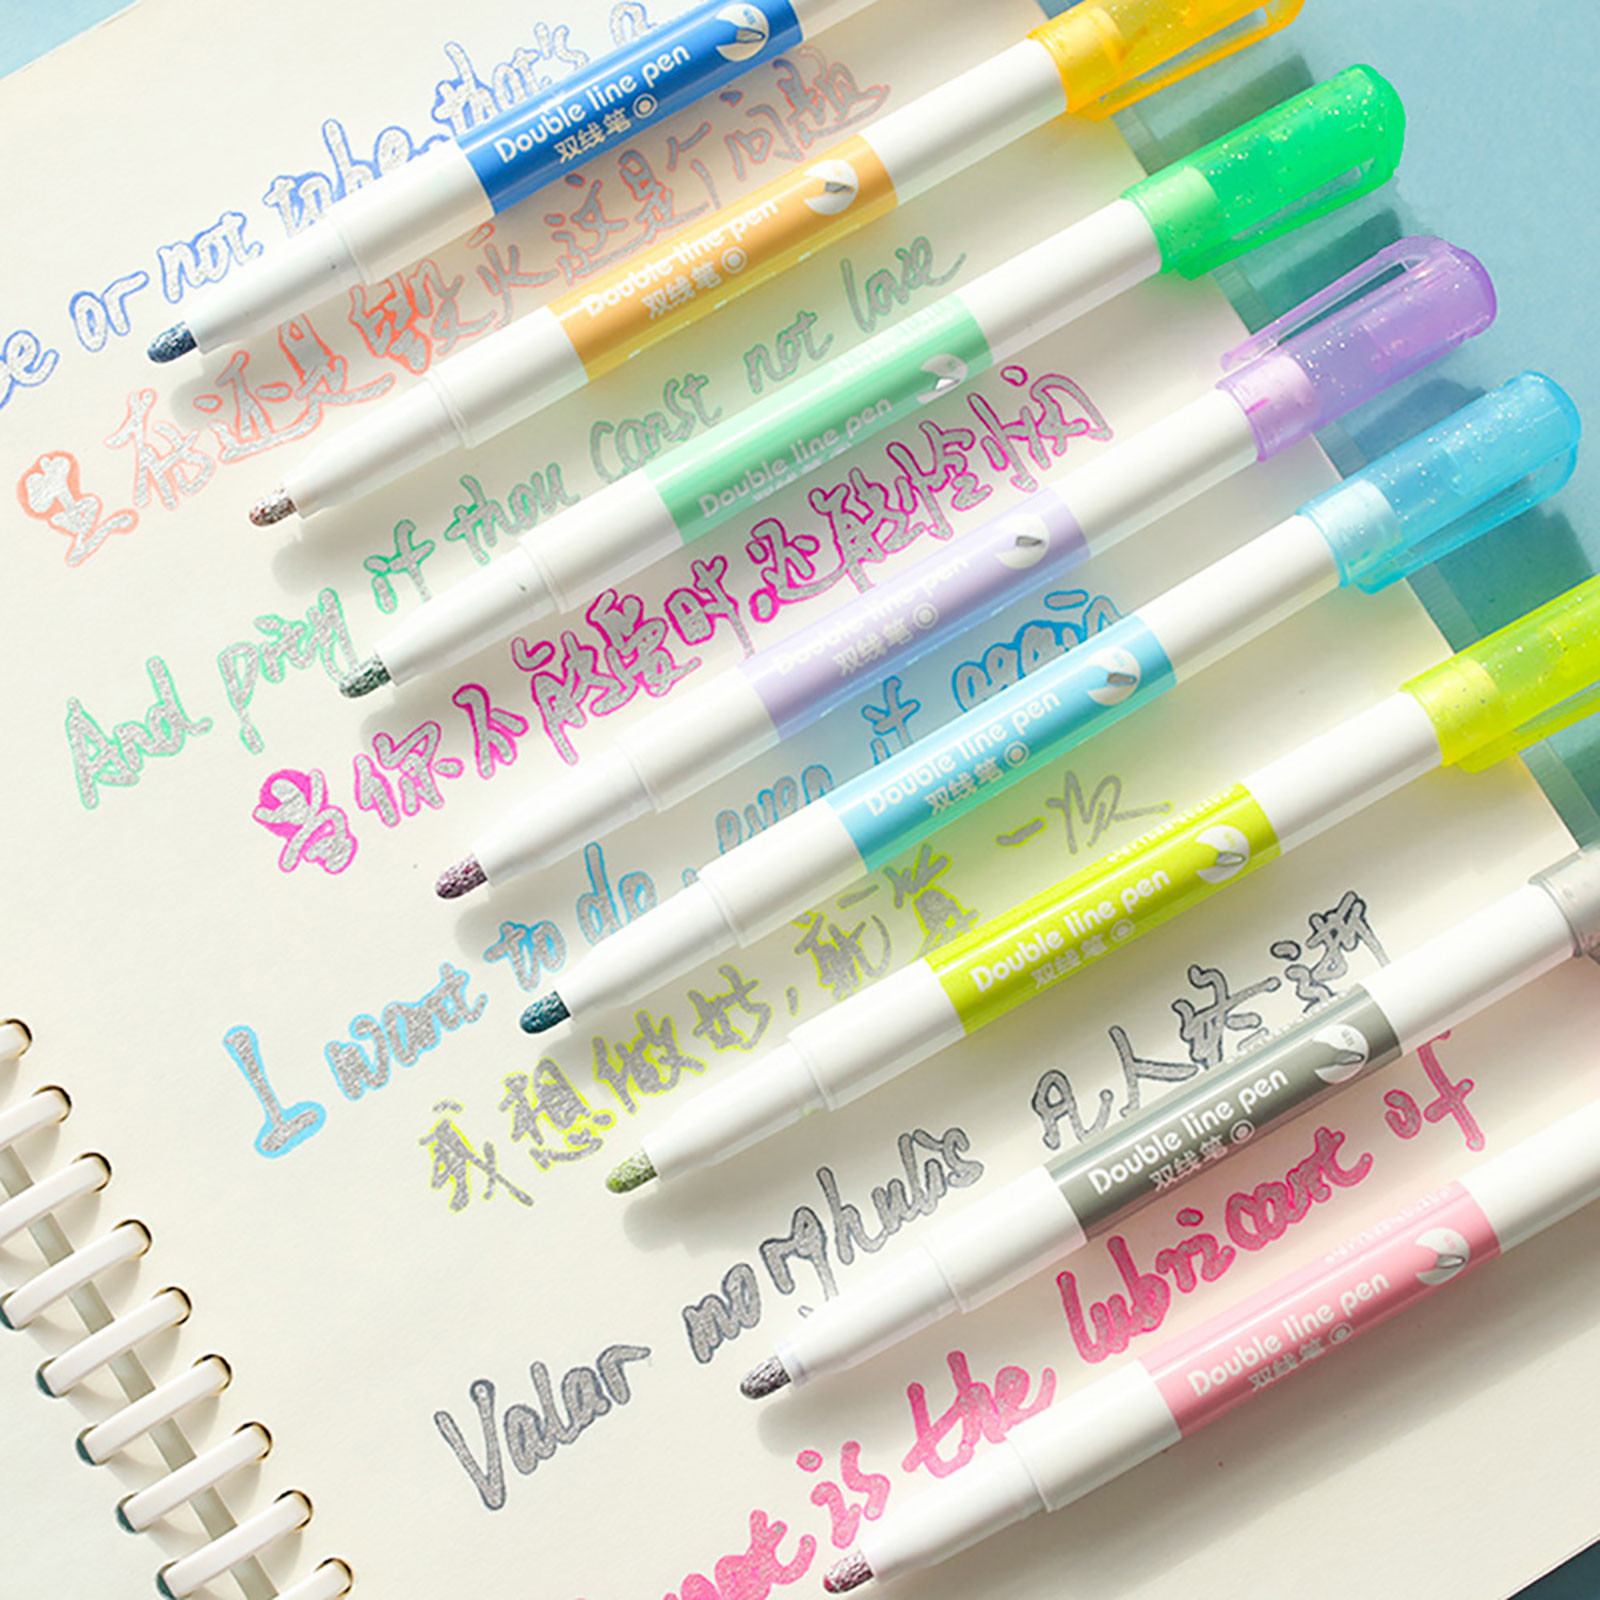 or not to be, that's a
Double line pen
双线笔
生存还是毁灭这是个问题
Double line pen
双线笔
And pity it thou canst not love
Double line pen
当你不能爱时,还敢怜悯
Double line pen
双线笔
I want to do, even it again
Double line pen
双线笔
我想做好,就算一次
Double line pen
双线笔
Valar morghulis 凡人
Double line pen
双线笔
is the lubricant of
Double line pen
双线笔